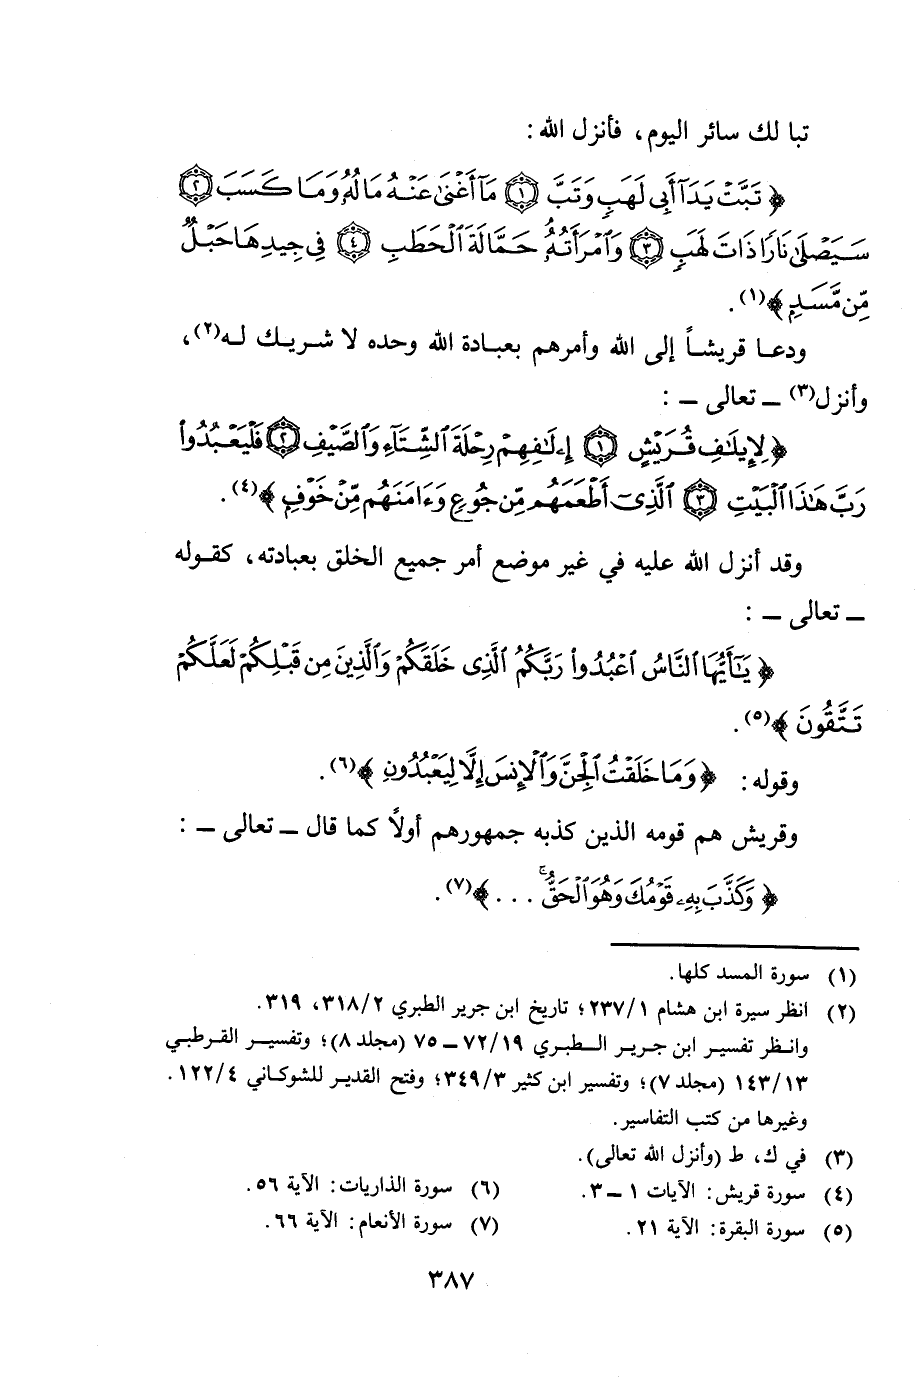 تبا لك سائر اليوم، فأنزل الله:
﴿ تَبَّتْ يَدَآ أَبِى لَهَبٍ وَتَبَّ ١ مَآ أَغْنَىٰ عَنْهُ مَالُهُۥ وَمَا كَسَبَ ٢
سَيَصْلَىٰ نَارًا ذَاتَ لَهَبٍ ٣ وَٱمْرَأَتُهُۥ حَمَّالَةَ ٱلْحَطَبِ ٤ فِى جِيدِهَا حَبْلٌ
مِّن مَّسَدٍ ﴾(١).
ودعا قريشاً إلى الله وأمرهم بعبادة الله وحده لا شريك له(٢)،
وأنزل(٣) ـ تعالى ـ :
﴿ لِإِيلَٰفِ قُرَيْشٍ ١ إِۦلَٰفِهِمْ رِحْلَةَ ٱلشِّتَآءِ وَٱلصَّيْفِ ٢ فَلْيَعْبُدُواْ
رَبَّ هَٰذَا ٱلْبَيْتِ ٣ ٱلَّذِىٓ أَطْعَمَهُم مِّن جُوعٍ وَءَامَنَهُم مِّنْ خَوْفٍ ﴾(٤).
وقد أنزل الله عليه في غير موضع أمر جميع الخلق بعبادته، كقوله
ـ تعالى ـ :
﴿ يَٰٓأَيُّهَا ٱلنَّاسُ ٱعْبُدُواْ رَبَّكُمُ ٱلَّذِى خَلَقَكُمْ وَٱلَّذِينَ مِن قَبْلِكُمْ لَعَلَّكُمْ
تَتَّقُونَ ﴾(٥).
وقوله: ﴿ وَمَا خَلَقْتُ ٱلْجِنَّ وَٱلْإِنسَ إِلَّا لِيَعْبُدُونِ ﴾(٦).
وقريش هم قومه الذين كذبه جمهورهم أولاً كما قال ـ تعالى ـ :
﴿ وَكَذَّبَ بِهِۦ قَوْمُكَ وَهُوَ ٱلْحَقُّ ۚ . . . ﴾(٧).
(١) سورة المسد كلها.
(٢) انظر سيرة ابن هشام ٢٣٧/١؛ تاريخ ابن جرير الطبري ٣١٨/٢، ٣١٩.
وانظر تفسير ابن جرير الطبري ٧٢/١٩ ـ ٧٥ (مجلد ٨)؛ وتفسير القرطبي
١٤٣/١٣ (مجلد ٧)؛ وتفسير ابن كثير ٣٤٩/٣؛ وفتح القدير للشوكاني ١٢٢/٤.
وغيرها من كتب التفاسير.
(٣) في ك، ط (وأنزل الله تعالى).
(٤) سورة قريش: الآيات ١ ـ ٣. (٦) سورة الذاريات: الآية ٥٦.
(٥) سورة البقرة: الآية ٢١. (٧) سورة الأنعام: الآية ٦٦.
٣٨٧